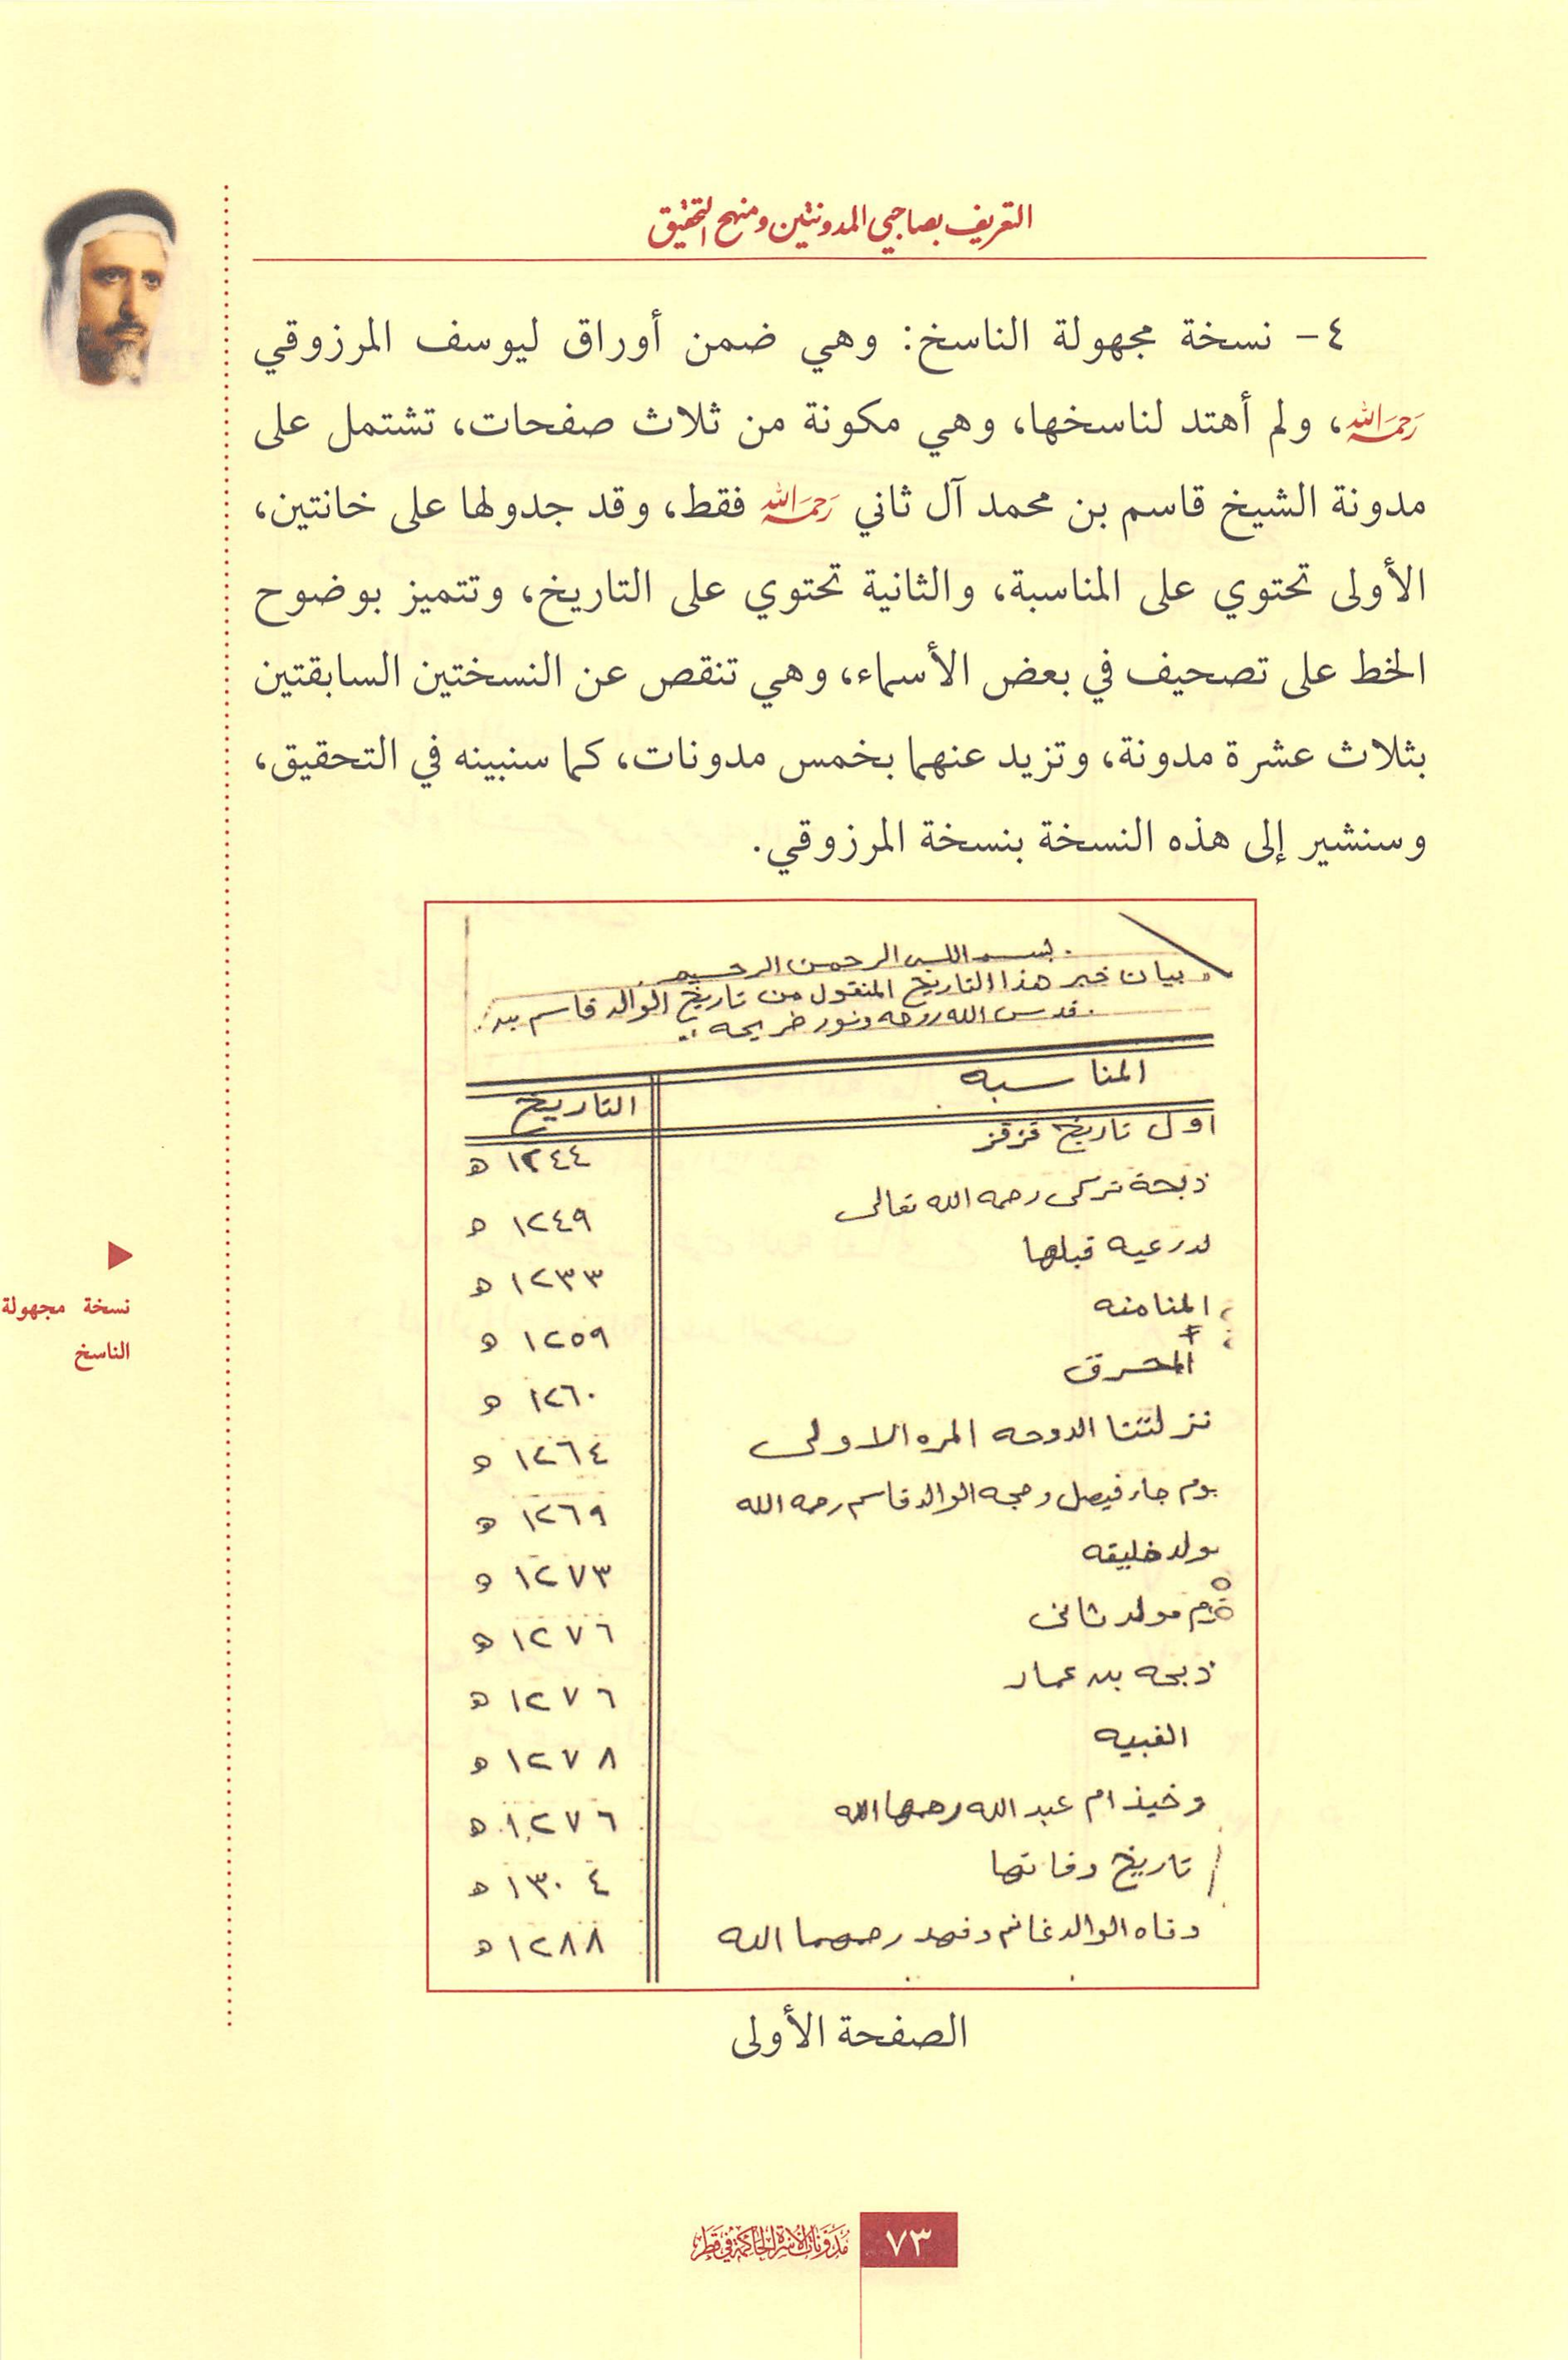 التعريف بصاحبي المدونتين ومنهج التحقيق
٤- نسخة مجهولة الناسخ: وهي ضمن أوراق ليوسف المرزوقي
رحمه الله، ولم أهتد لناسخها، وهي مكونة من ثلاث صفحات، تشتمل على
مدونة الشيخ قاسم بن محمد آل ثاني رحمه الله فقط، وقد جدولها على خانتين،
الأولى تحتوي على المناسبة، والثانية تحتوي على التاريخ، وتتميز بوضوح
الخط على تصحيف في بعض الأسماء، وهي تنقص عن النسختين السابقتين
بثلاث عشرة مدونة، وتزيد عنهما بخمس مدونات، كما سنبينه في التحقيق،
وسنشير إلى هذه النسخة بنسخة المرزوقي.
بسم الله الرحمن الرحيم
بيان خبر هذا التاريخ المنقول من تاريخ الوالد قاسم بن
قدس الله روحه ونور ضريحه
المناسبه التاريخ
اول تاريخ قزقز ١٢٤٤ ه
ذبحة تركى رحمه الله تعالى ١٢٤٩ ه
لدرعيه قبلها ١٢٣٣ ه
المنامنه ١٢٥٩ ه
المحرق ١٢٦٠ ه
نزلتنا الدوحه المره الاولى ١٢٦٤ ه
يوم جاء فيصل وحجه الوالد قاسم رحمه الله ١٢٦٩ ه
مولد خليفه ١٢٧٣ ه
مولد ثانى ١٢٧٦ ه
ذبحه بن عمار ١٢٧٦ ه
الغبيه ١٢٧٨ ه
وخيذ ام عبد الله رحمها الله ١٢٧٦ ه
تاريخ وفاتها ١٣٠٤ ه
وفاه الوالد غانم وفهد رحمهما الله ١٢٨٨ ه
نسخة مجهولة
الناسخ
الصفحة الأولى
٧٣ مدونات الأسرة الحاكمة في قطر